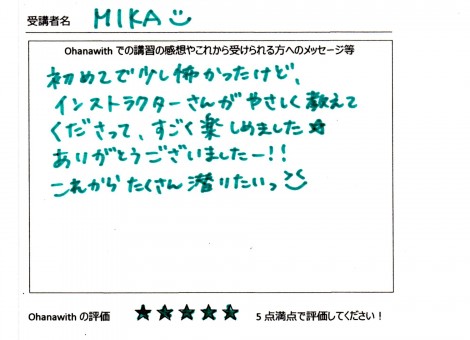 受講者名 MIKA
Ohanawith での講習の感想やこれから受けられる方へのメッセージ等
初めてで少し怖かったけど、
インストラクターさんがやさしく教えて
くださって、すごく楽しめました★
ありがとうございましたー!!
これからたくさん潜りたいっ
Ohanawith の評価 ★★★★★ 5 点満点で評価してください！